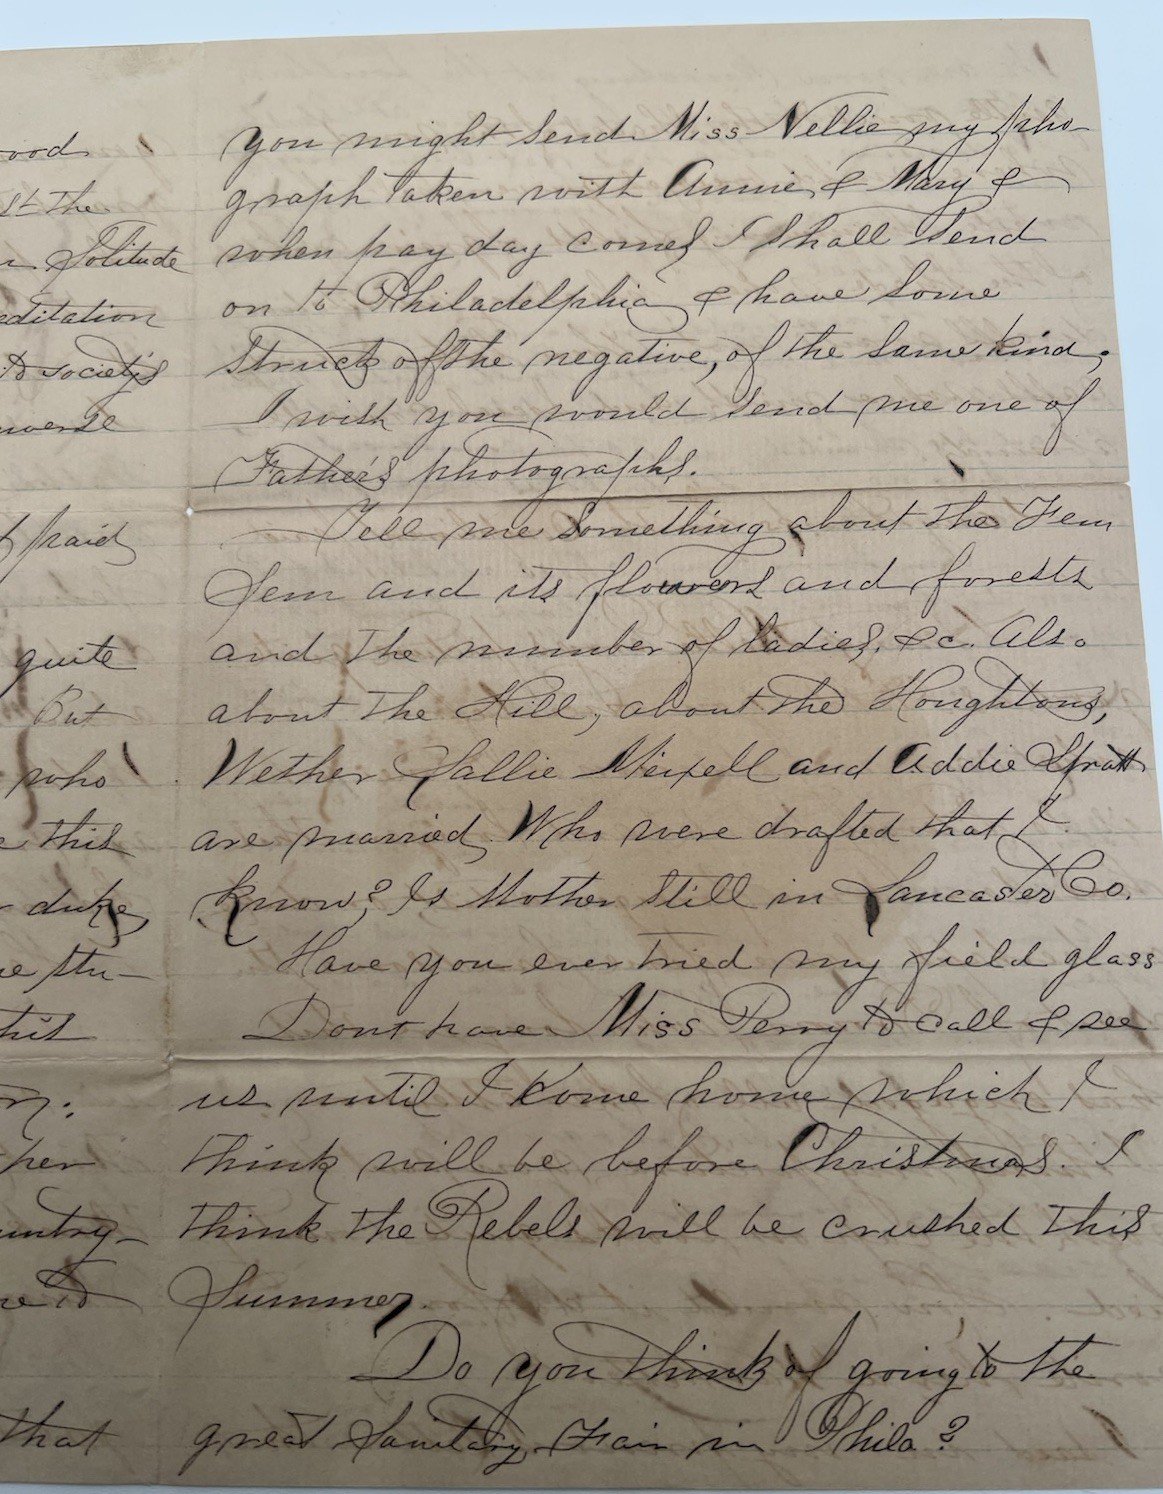 ood
st the
Solitude
editation
to society's
verse
paid
quite
But
who
this
duke
stu-
this
her
untry-
to
that
you might send Miss Nellie my pho-
graph taken with Annie & Mary &
when pay day comes I shall send
on to Philadelphia & have some
struck off the negative, of the same kind,
I wish you would send me one of
Father's photographs.
Tell me something about the Fem
Sem and its flowers and forests
and the number of ladies, &c. Also
about the Hill, about the Houghtons,
Wether Sallie Meixell and Addie Spratt
are married. Who were drafted that I
know? Is Mother still in Lancaster Co.
Have you ever tried my field glass
Dont have Miss Perry to call & see
us until I kome home which I
think will be before Christmas. I
think the Rebels will be crushed this
Summer.
Do you think of going to the
great Sanitary Fair in Phila?